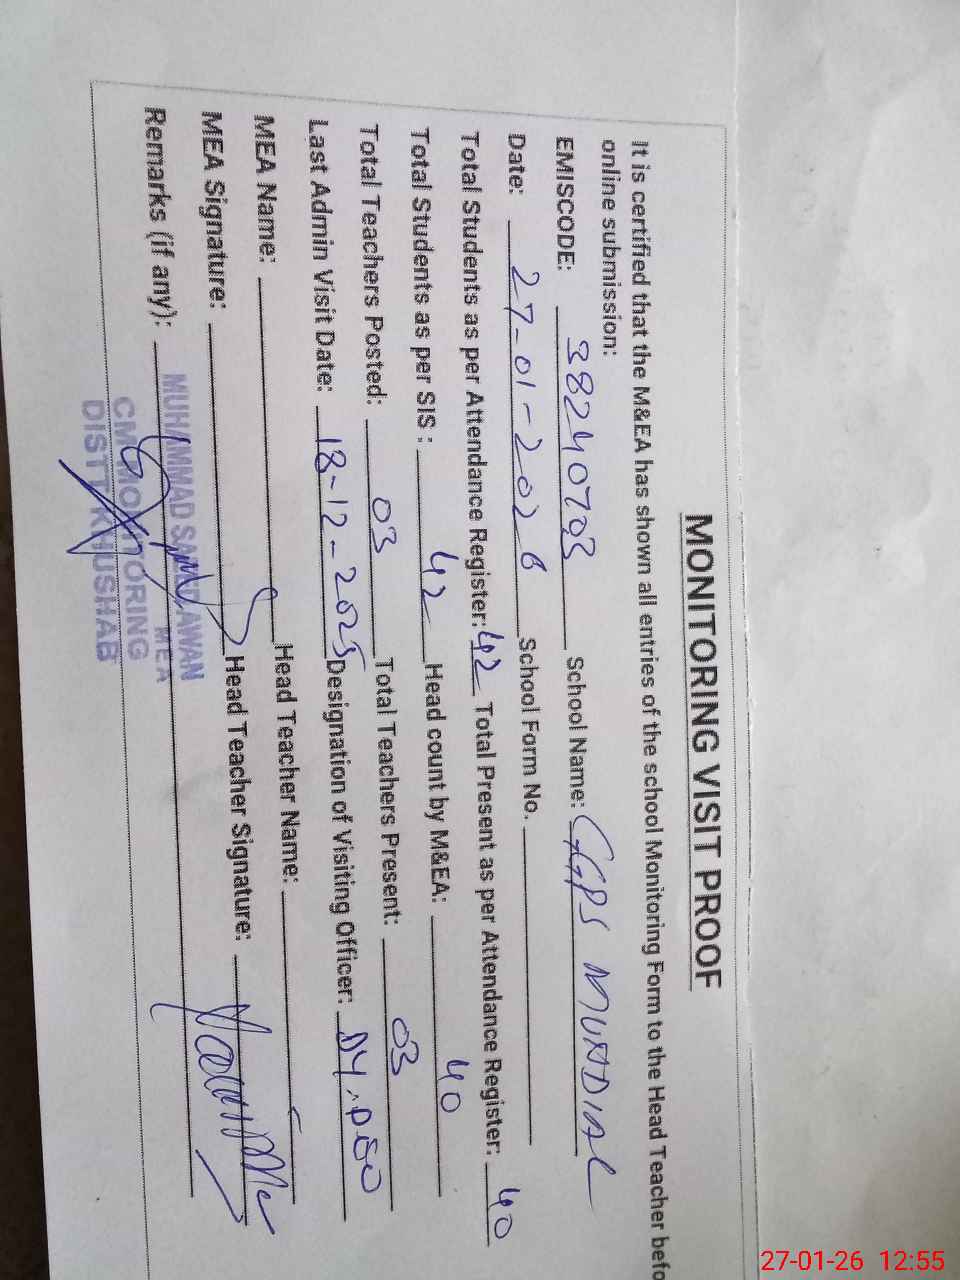 MONITORING VISIT PROOF
It is certified that the M&EA has shown all entries of the school Monitoring Form to the Head Teacher befo
online submission:
EMISCODE: 38240703 School Name: GGPS MUNDIAL
Date: 27-01-2026 School Form No.
Total Students as per Attendance Register: 42 Total Present as per Attendance Register: 40
Total Students as per SIS : 42 Head count by M&EA: 40
Total Teachers Posted: 03 Total Teachers Present: 03
Last Admin Visit Date: 18-12-2025 Designation of Visiting Officer: DY.DEO
MEA Name: Head Teacher Name:
MEA Signature: Head Teacher Signature:
Remarks (if any):
MUHAMMAD AWAN
MEA
CM MONITORING
DISTT KHUSHAB
27-01-26 12:55